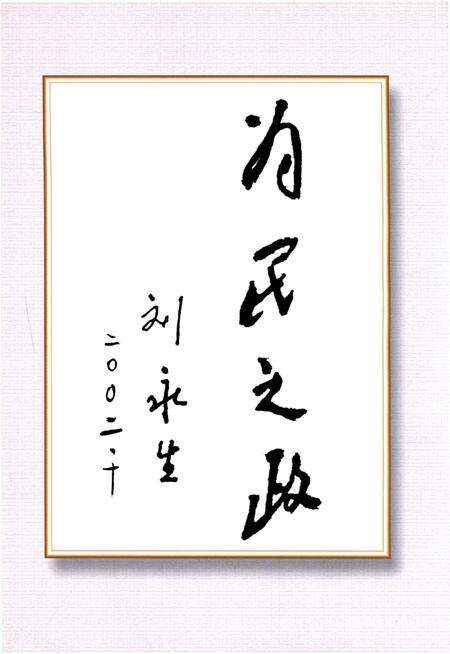 为民之政
刘永生
二〇〇二、十